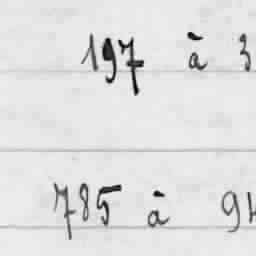 197 à 3
785 à 94